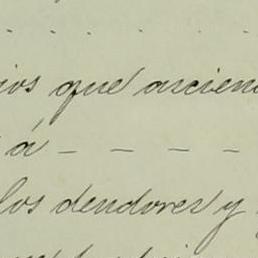 ios que ascien
á - - - -
los deudores y